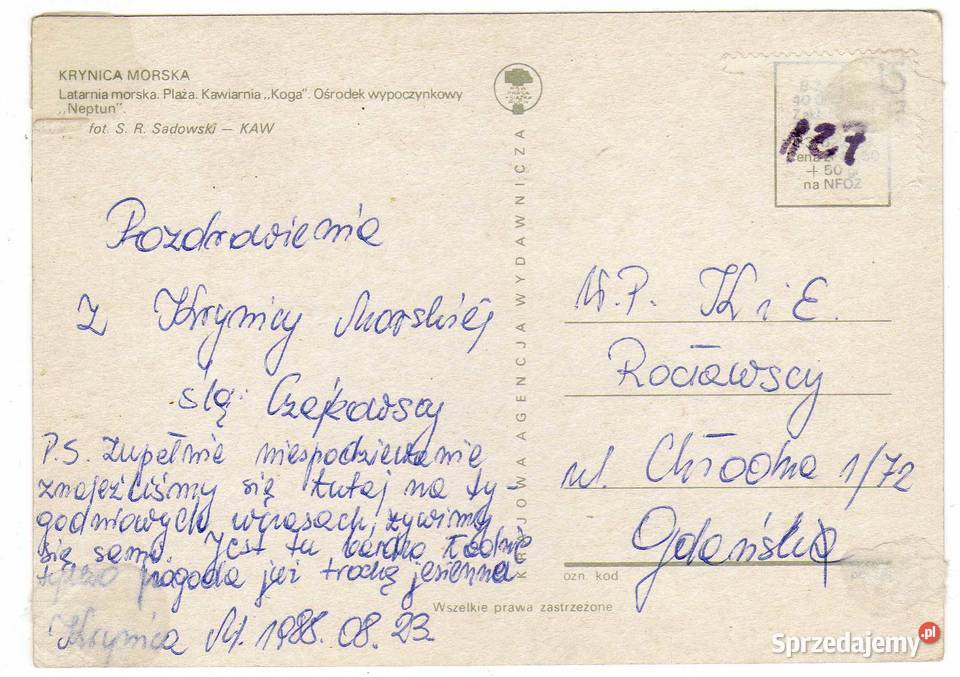 KRYNICA MORSKA
Latarnia morska. Plaża. Kawiarnia „Koga". Ośrodek wypoczynkowy
„Neptun".
fot. S. R. Sadowski — KAW
Pozdrowienia
z Krynicy Morskiej
ślą Czajkowscy
P.S. Zupełnie niespodziewanie
znaleźliśmy się tutaj na ty-
godniowych wczasach, żywimy
się sami. Jest tu bardzo ładnie
tylko pogoda już trochę jesienna
Krynica M. 1988.08.23.
KRAJOWA AGENCJA WYDAWNICZA
15
127
Cena zł
+ 50
na NFOZ
W.P. K i E.
Rocławscy
ul. Chłodna 1/72
Gdańsk
ozn. kod
Wszelkie prawa zastrzeżone
Sprzedajemy.pl